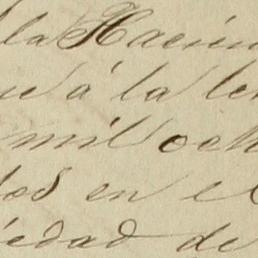 la Hacien
ue á la le
mil och
dos en el
iedad de